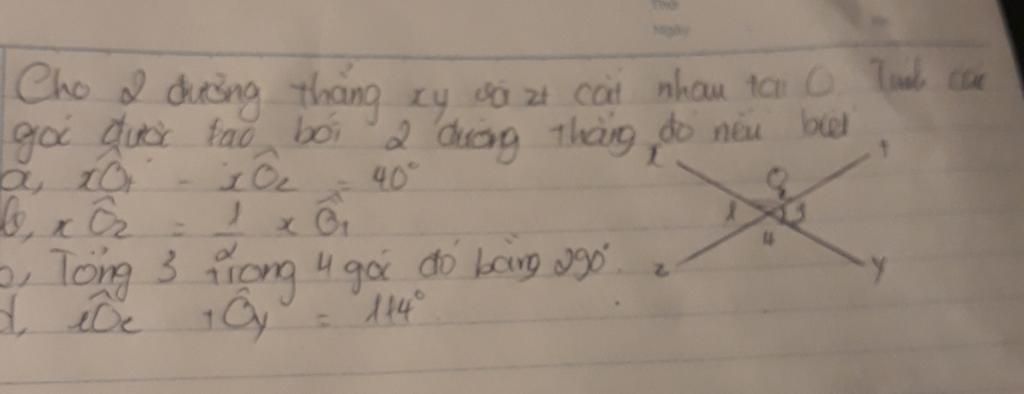 Thứ
Ngày
Cho 2 đường thẳng xy và zt cắt nhau tại O Tính các
gói được tạo bởi 2 đường thẳng đó nếu biết
a, xÔt - xÔz = 40°
b, xÔz = 1/2 xÔt
c, Tổng 3 trong 4 gói đó bằng 290°.
d, xÔz tÔy = 114°
x t
O
1 2 3
4
z y